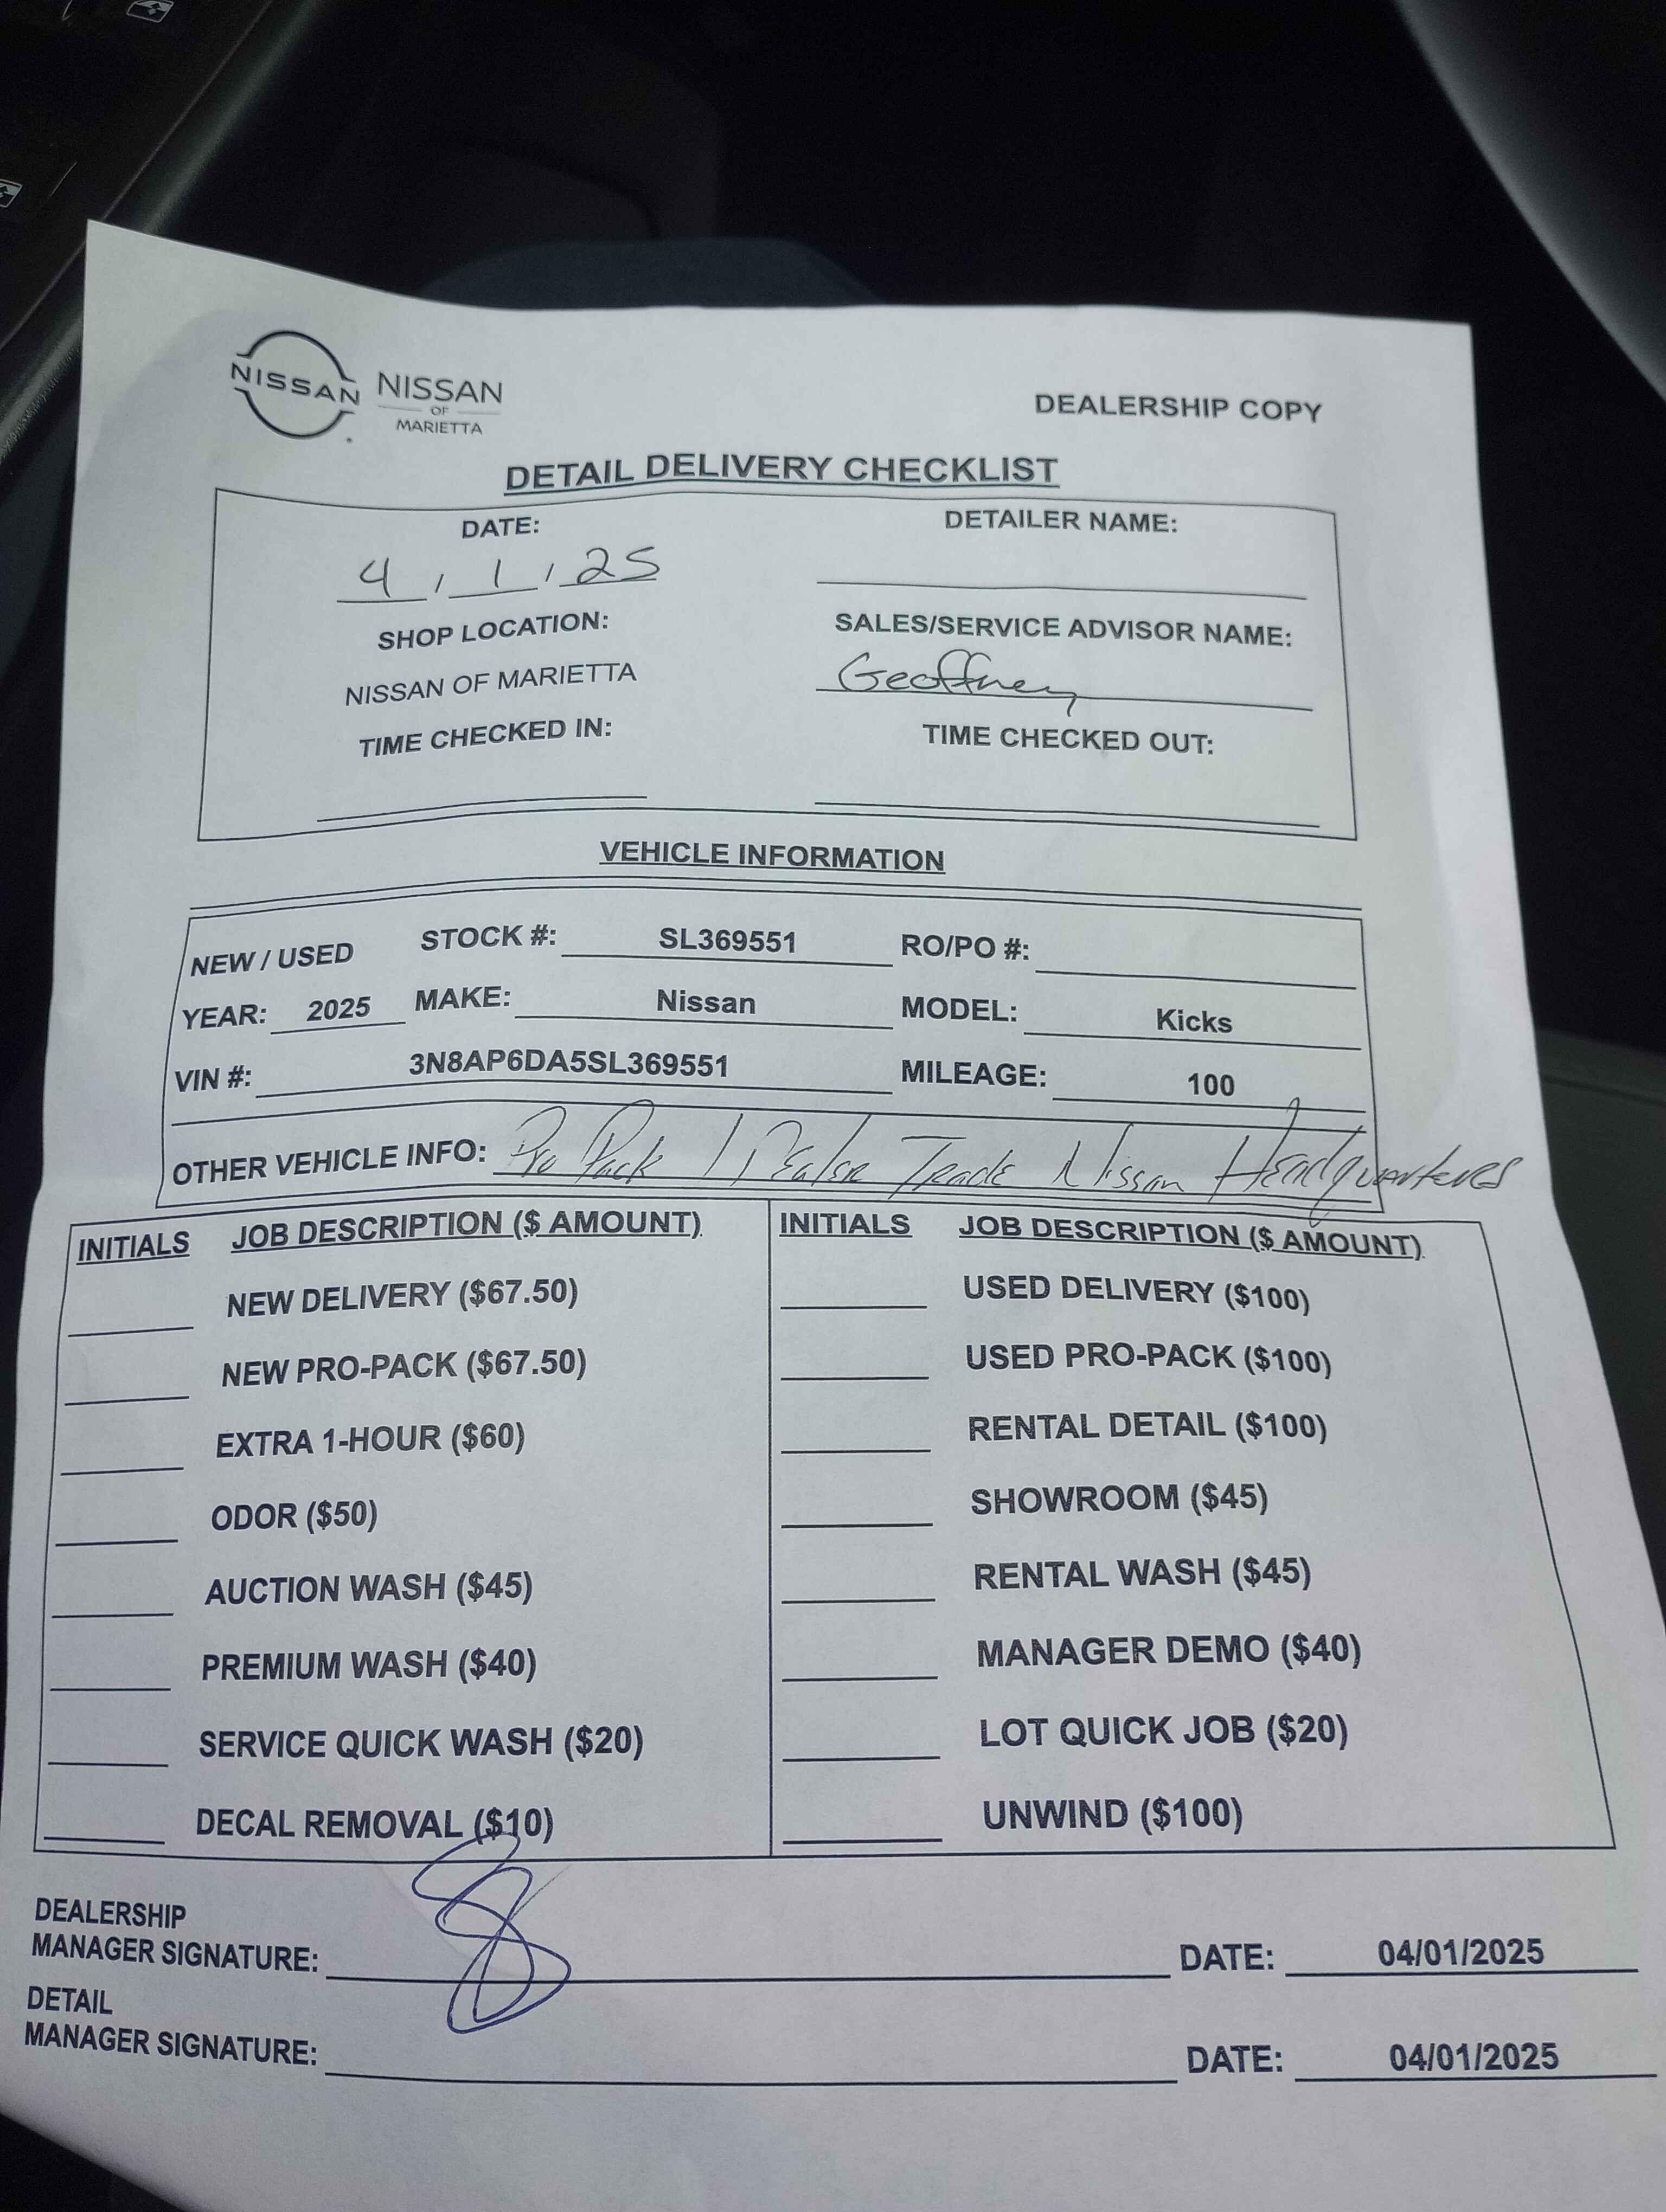 NISSAN NISSAN
OF
MARIETTA
DEALERSHIP COPY
DETAIL DELIVERY CHECKLIST
DATE: DETAILER NAME:
4 / 1 / 25
SHOP LOCATION: SALES/SERVICE ADVISOR NAME:
NISSAN OF MARIETTA Geoffrey
TIME CHECKED IN: TIME CHECKED OUT:
VEHICLE INFORMATION
NEW / USED STOCK #: SL369551 RO/PO #:
YEAR: 2025 MAKE: Nissan MODEL: Kicks
VIN #: 3N8AP6DA5SL369551 MILEAGE: 100
OTHER VEHICLE INFO: Pro Pack / Dealer Trade Nissan Headquarters
INITIALS JOB DESCRIPTION ($ AMOUNT) INITIALS JOB DESCRIPTION ($ AMOUNT)
NEW DELIVERY ($67.50) USED DELIVERY ($100)
NEW PRO-PACK ($67.50) USED PRO-PACK ($100)
EXTRA 1-HOUR ($60) RENTAL DETAIL ($100)
ODOR ($50) SHOWROOM ($45)
AUCTION WASH ($45) RENTAL WASH ($45)
PREMIUM WASH ($40) MANAGER DEMO ($40)
SERVICE QUICK WASH ($20) LOT QUICK JOB ($20)
DECAL REMOVAL ($10) UNWIND ($100)
DEALERSHIP
MANAGER SIGNATURE: DATE: 04/01/2025
DETAIL
MANAGER SIGNATURE: DATE: 04/01/2025